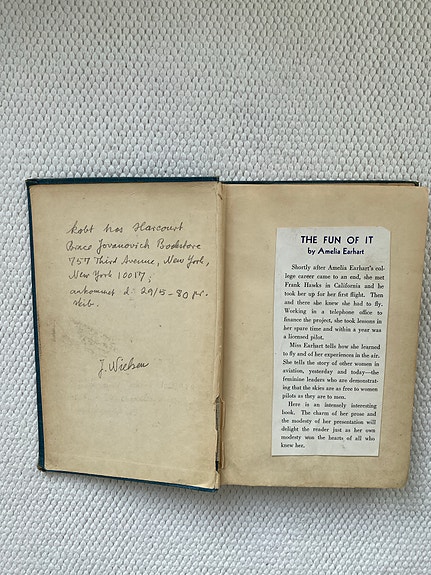 købt hos Harcourt
Brace Jovanovich Bookstore
757 Third Avenue, New York,
New York 10017,
ankommet d. 29/5-80 pr.
skib.
J. Nielsen
THE FUN OF IT
by Amelia Earhart
Shortly after Amelia Earhart's col-
lege career came to an end, she met
Frank Hawks in California and he
took her up for her first flight. Then
and there she knew she had to fly.
Working in a telephone office to
finance the project, she took lessons in
her spare time and within a year was
a licensed pilot.
Miss Earhart tells how she learned
to fly and of her experiences in the air.
She tells the story of other women in
aviation, yesterday and today—the
feminine leaders who are demonstrat-
ing that the skies are as free to women
pilots as they are to men.
Here is an intensely interesting
book. The charm of her prose and
the modesty of her presentation will
delight the reader just as her own
modesty won the hearts of all who
knew her.